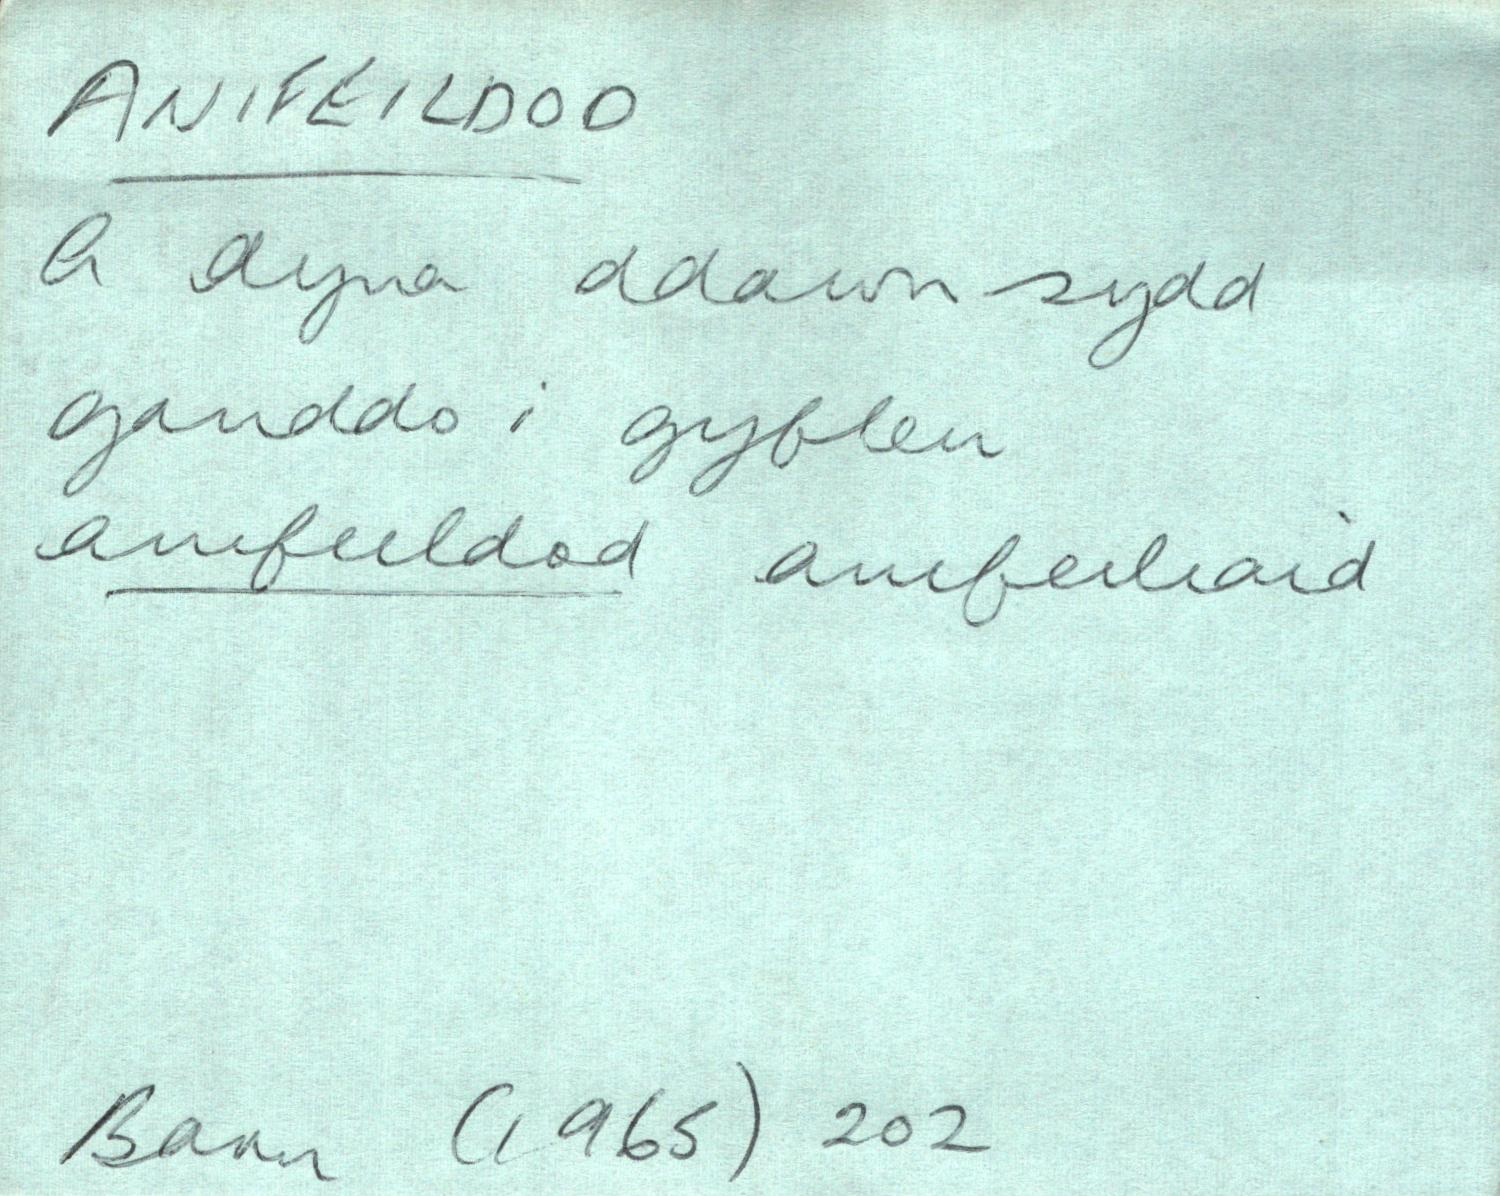 ANIFEILDOD
A dyna ddawn sydd
ganddo i gyfleu
anifeildod anifeiliaid
Barn (1965) 202